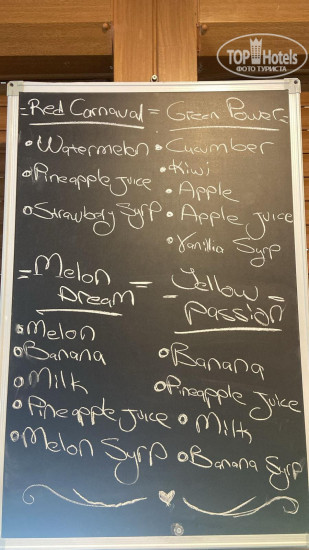 TOP Hotels
ФОТО ТУРИСТА
= Red Carnaval =
• Watermelon
• Pineapple Juice
• Strawbary Syrp
Green Power =
• Cucumber
• Kiwi
• Apple
• Apple Juice
• Vanillia Syrp
= Melon =
Dream
• Melon
• Banana
• Milk
• Pineapple Juice
• Melon Syrp
– Yellow =
Passion
• Banana
• Pineapple Juice
• Milk
• Banana Syrp